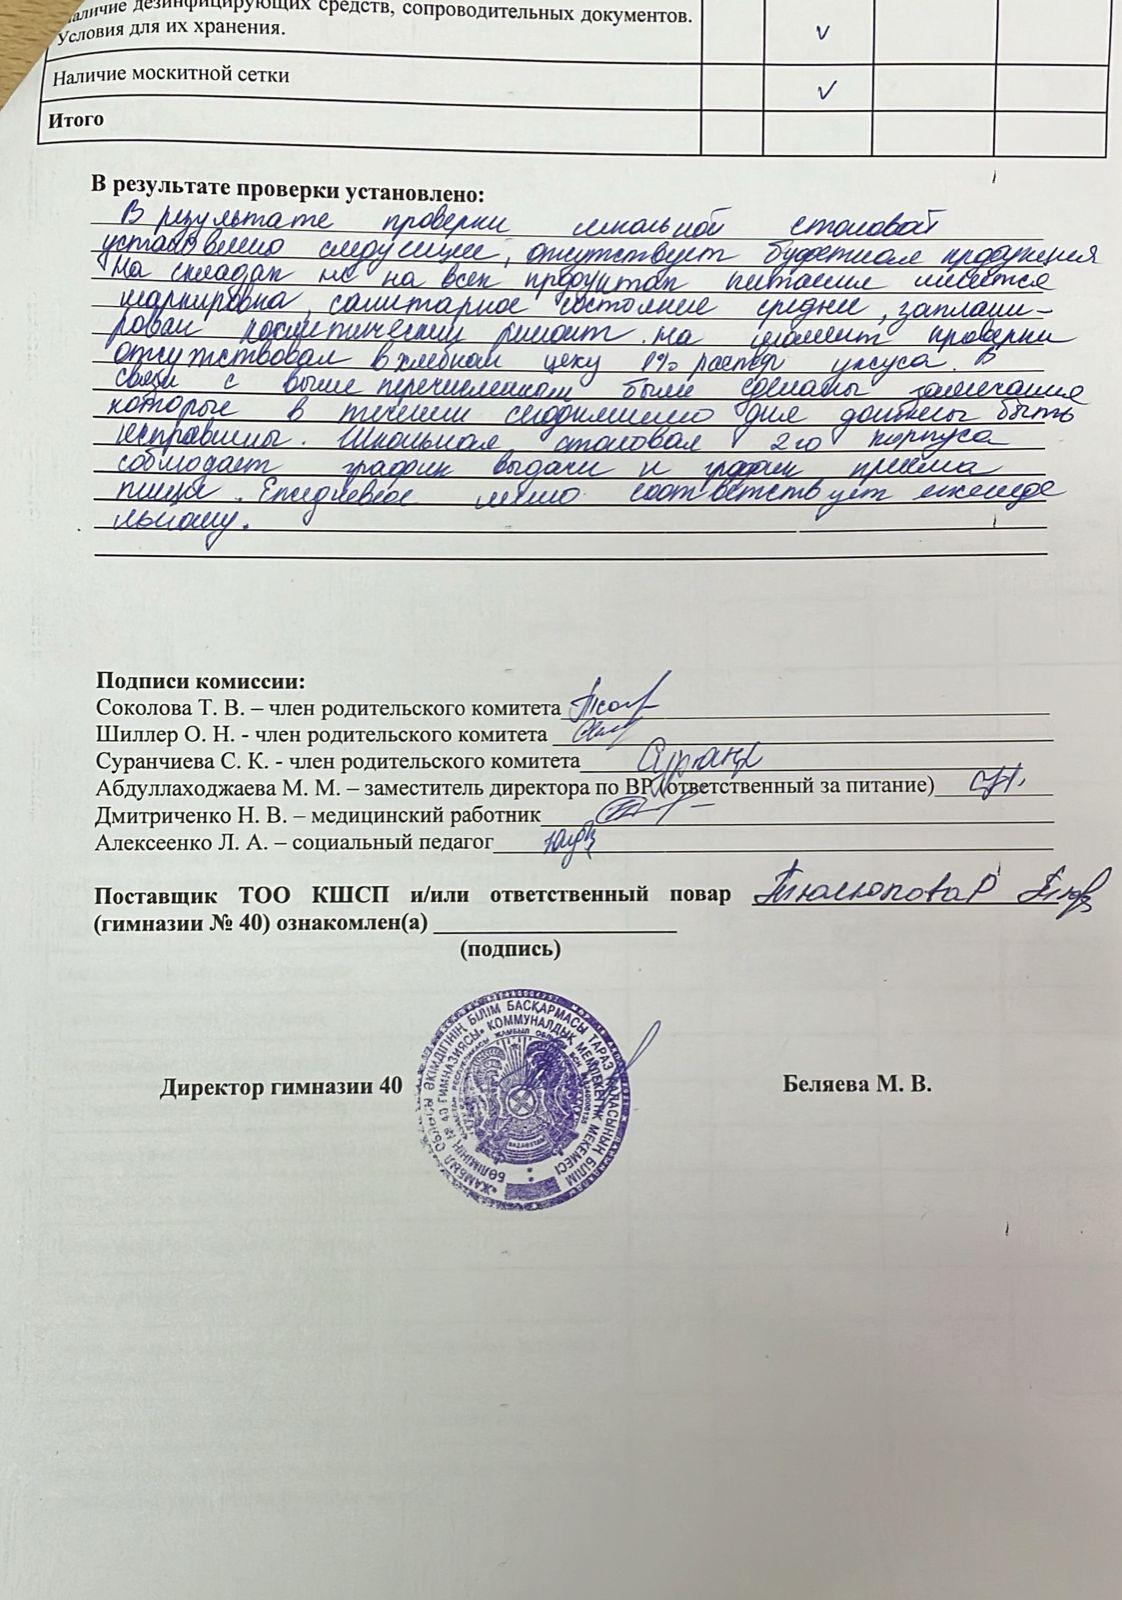 Наличие дезинфицирующих средств, сопроводительных документов.
Условия для их хранения.
Наличие москитной сетки
Итого
В результате проверки установлено:
В результате проверки школьной столовой
установлено следующее, отсутствует буфетная продукция
На складах не на всех продуктах питания имеется
маркировка, санитарное состояние среднее, заплани-
рован косметический ремонт. На момент проверки
отсутствовал в хлебном цеху 1% раствор уксуса. В
связи с выше перечисленным были сделаны замечания
которые в течении сегодняшнего дня должны быть
исправлены. Школьная столовая 2го корпуса
соблюдает график выдачи и график приема
пищи. Ежедневное меню соответствует еженеде
льному.
Подписи комиссии:
Соколова Т. В. – член родительского комитета
Шиллер О. Н. - член родительского комитета
Суранчиева С. К. - член родительского комитета
Абдуллаходжаева М. М. – заместитель директора по ВР (ответственный за питание)
Дмитриченко Н. В. – медицинский работник
Алексеенко Л. А. – социальный педагог
Поставщик ТОО КШСП и/или ответственный повар
(гимназии № 40) ознакомлен(а)
(подпись)
Директор гимназии 40
Беляева М. В.